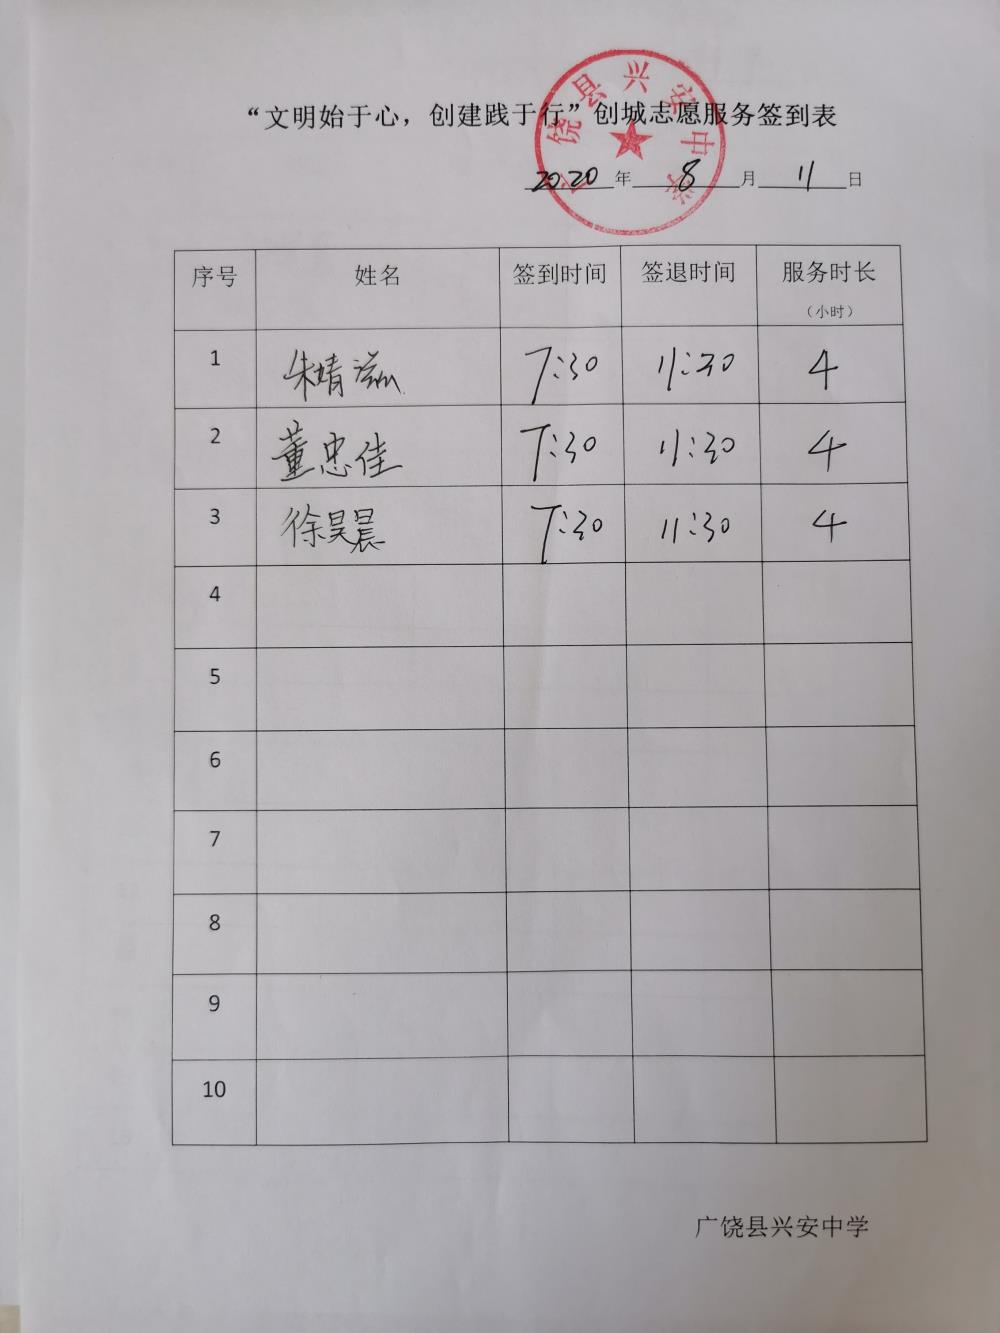 “文明始于心，创建践于行”创城志愿服务签到表
广饶县兴安中学
2020 年 8 月 11 日
序号 姓名 签到时间 签退时间 服务时长
（小时）
1 朱靖滋 7:30 11:30 4
2 董忠佳 7:30 11:30 4
3 徐昊晨 7:30 11:30 4
4
5
6
7
8
9
10
广饶县兴安中学